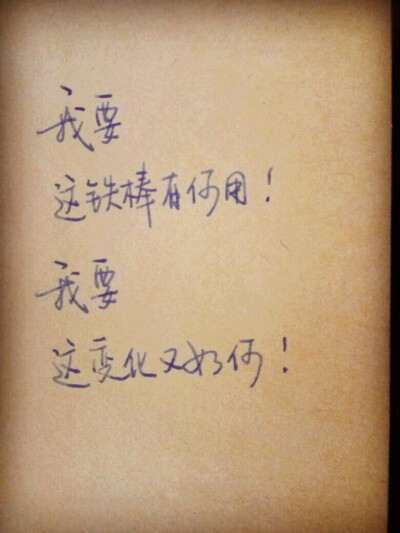 我要
这铁棒有何用！
我要
这变化又如何！